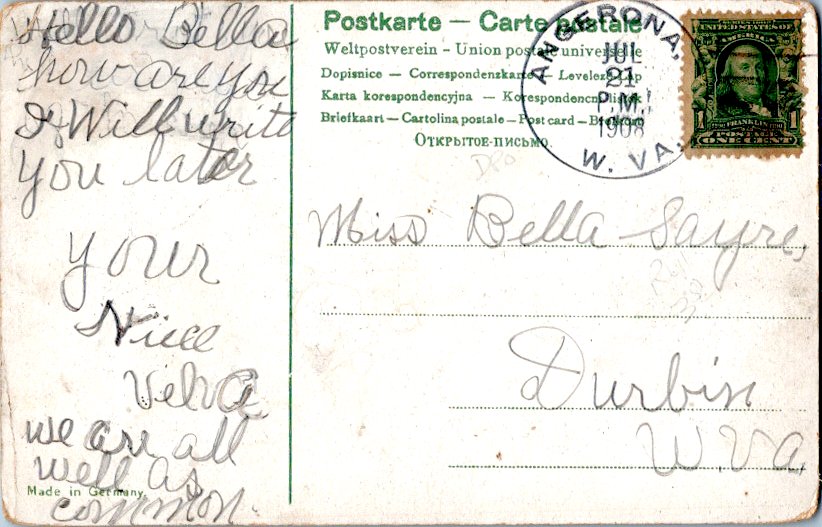 Hello Bella
how are you
I Will write
you later
your
Niece
Velva
we are all
well as
common.
Made in Germany.
Postkarte — Carte postale
Weltpostverein - Union postale universelle
Dopisnice — Correspondenzkarte — Levelező-lap
Karta korespondencyjna — Korespondencni listek
Briefkaart — Cartolina postale — Post card — Brefkort
ОТКРЫТОЕ ПИСЬМО.
ANGERONA,
JUL
21
P.M.
1908
W. VA.
SERIES 1902
UNITED STATES OF
AMERICA
FRANKLIN
1 1
POSTAGE
ONE CENT
DPO
Miss Bella Sayre,
Durbin
W. Va